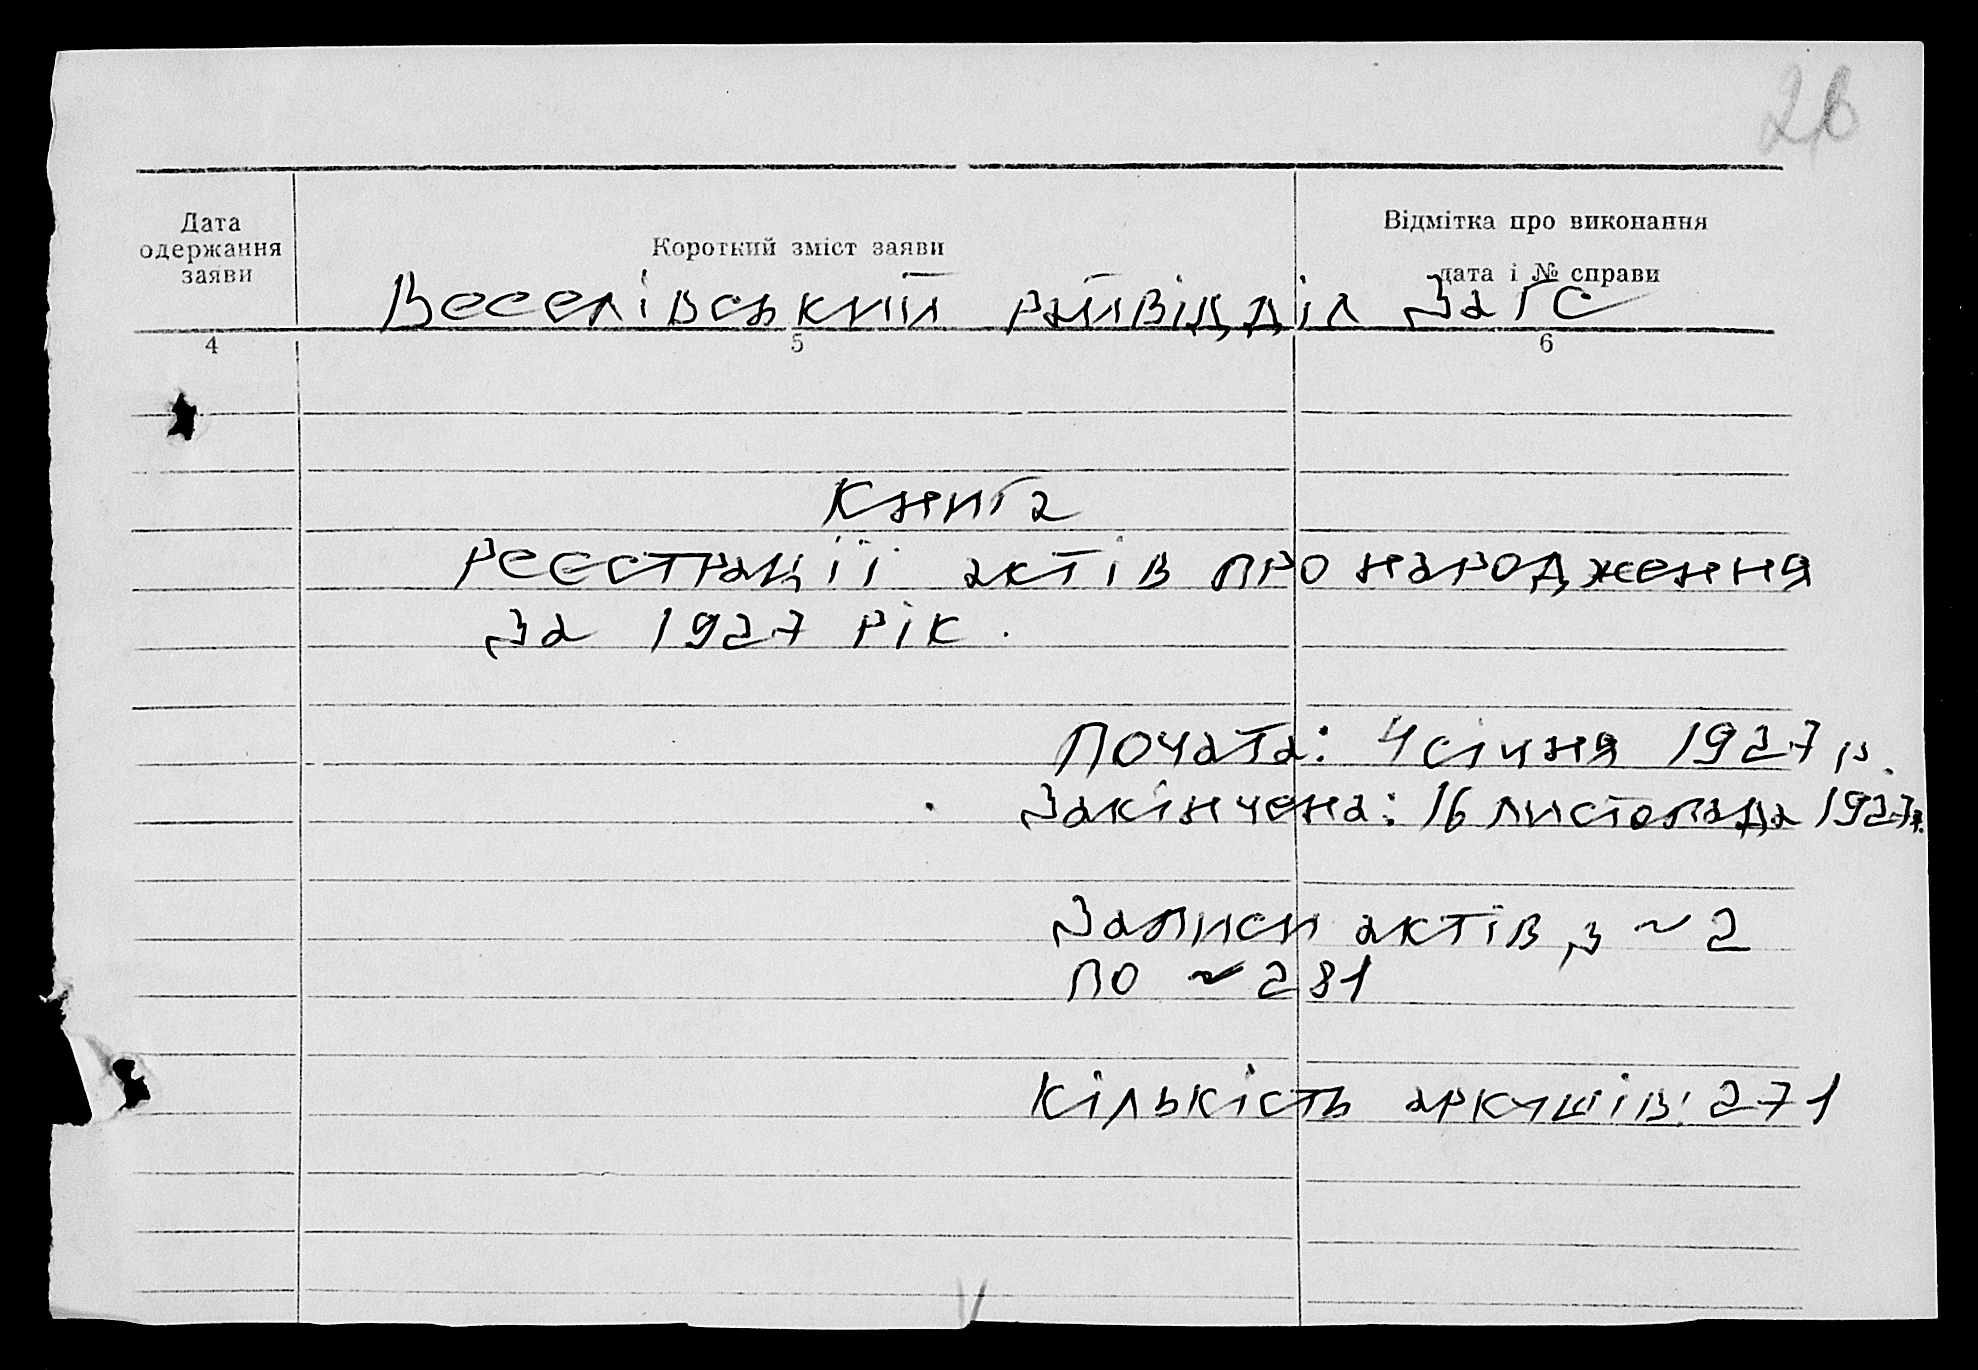 26
Дата
одержання
заяви
Короткий зміст заяви
Відмітка про виконання
дата і № справи
Веселівський райвідділ ЗаГС
4 5 6
Книга
реєстрації актів про народження
за 1927 рік.
Почата: 4 січня 1927 р.
Закінчена: 16 листопада 1927 р.
Записи актів з ~ 2
по ~ 281
Кількість аркушів: 271